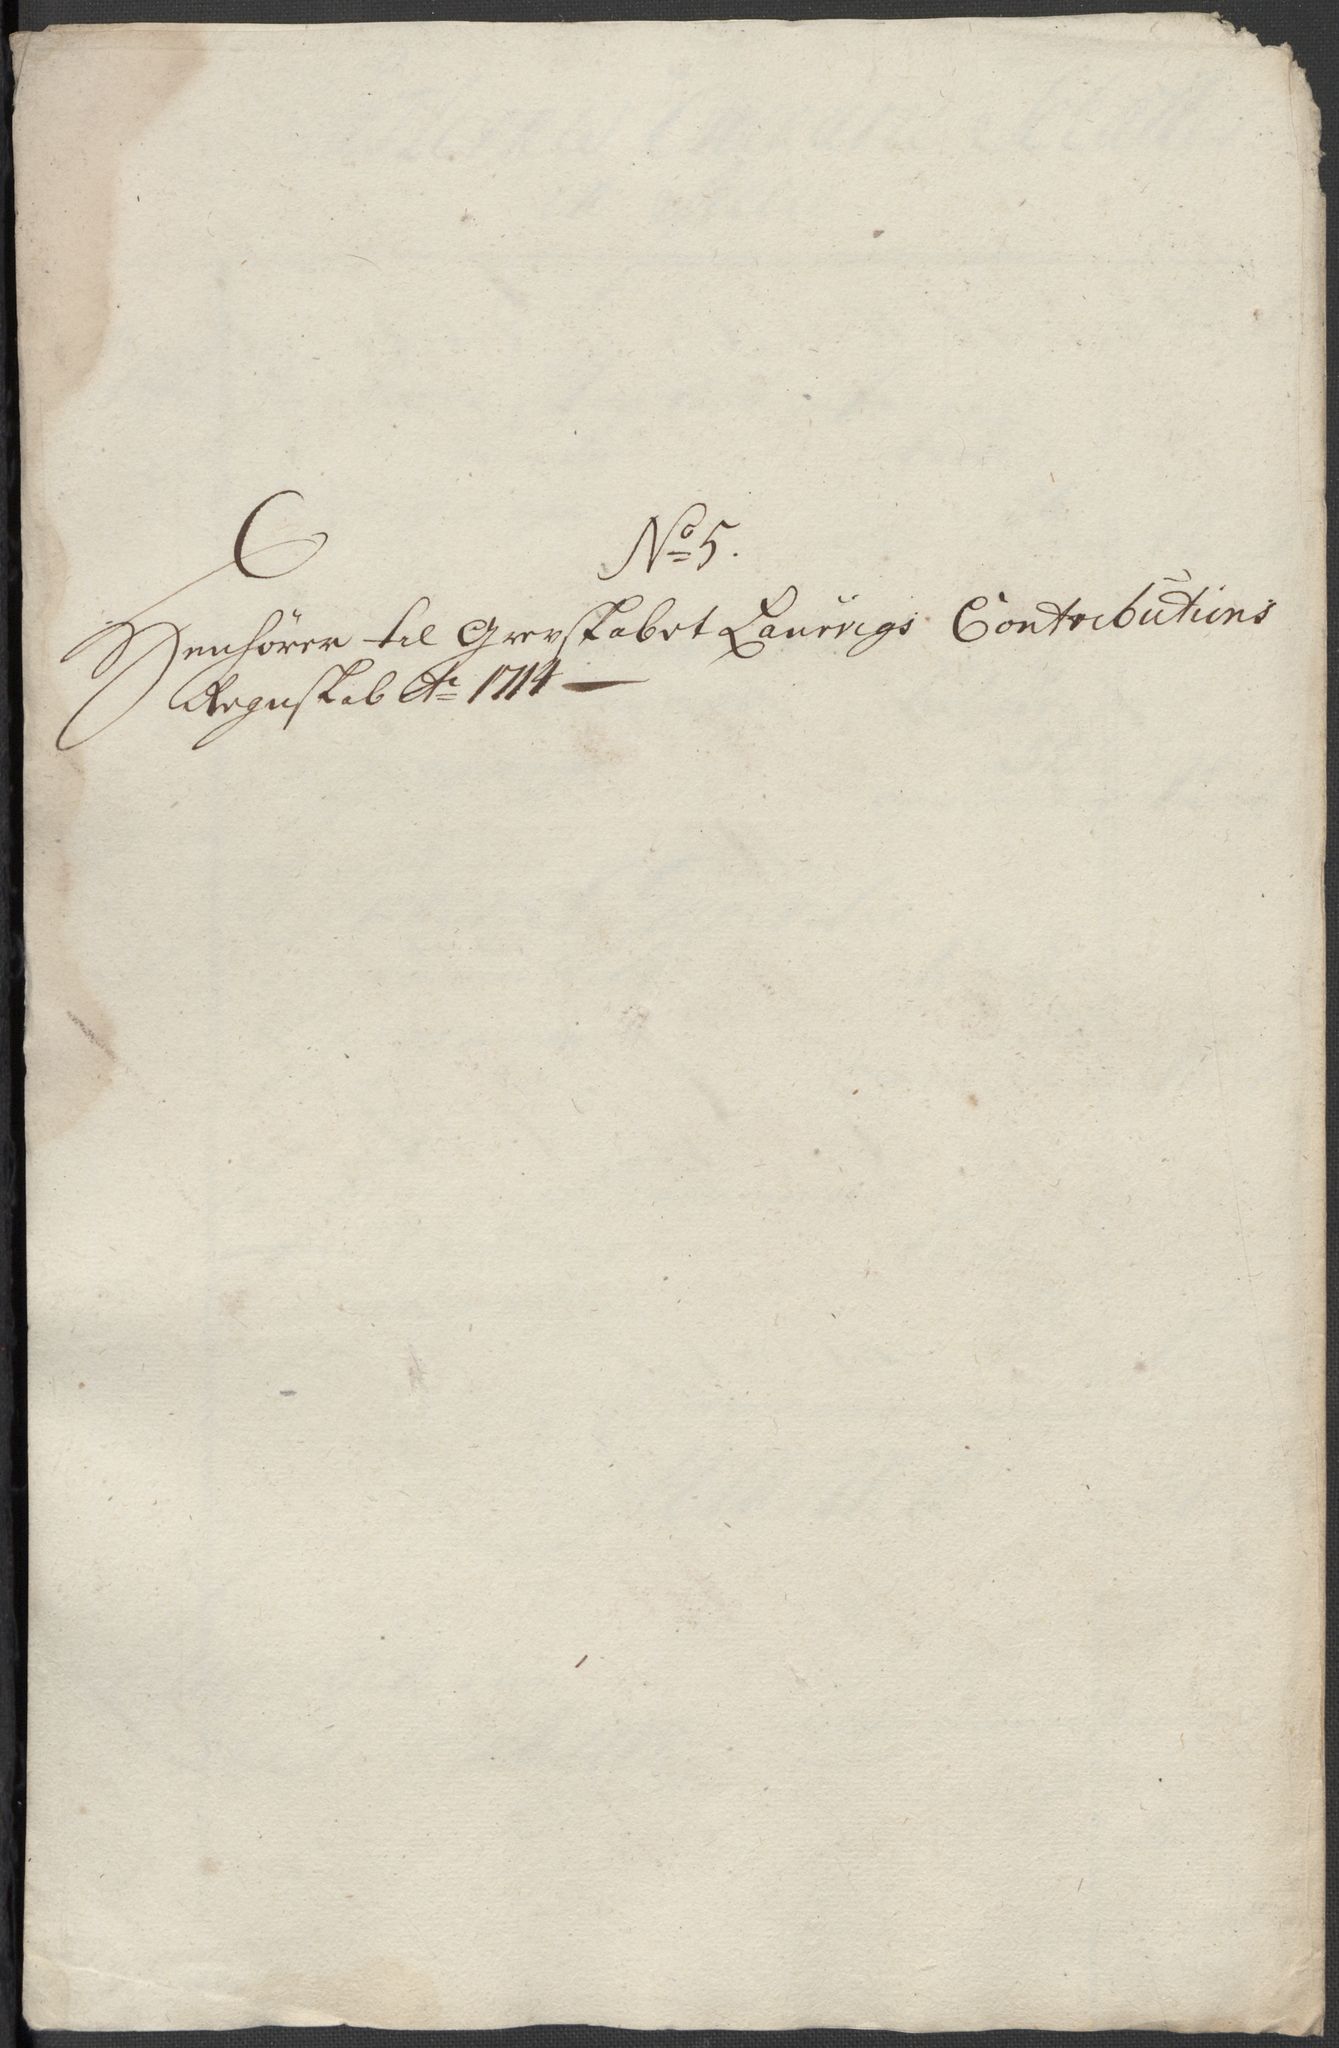 No 5.
Henhörer til Grevskabet Laurvigs Contributions
Regnskab Ao 1714